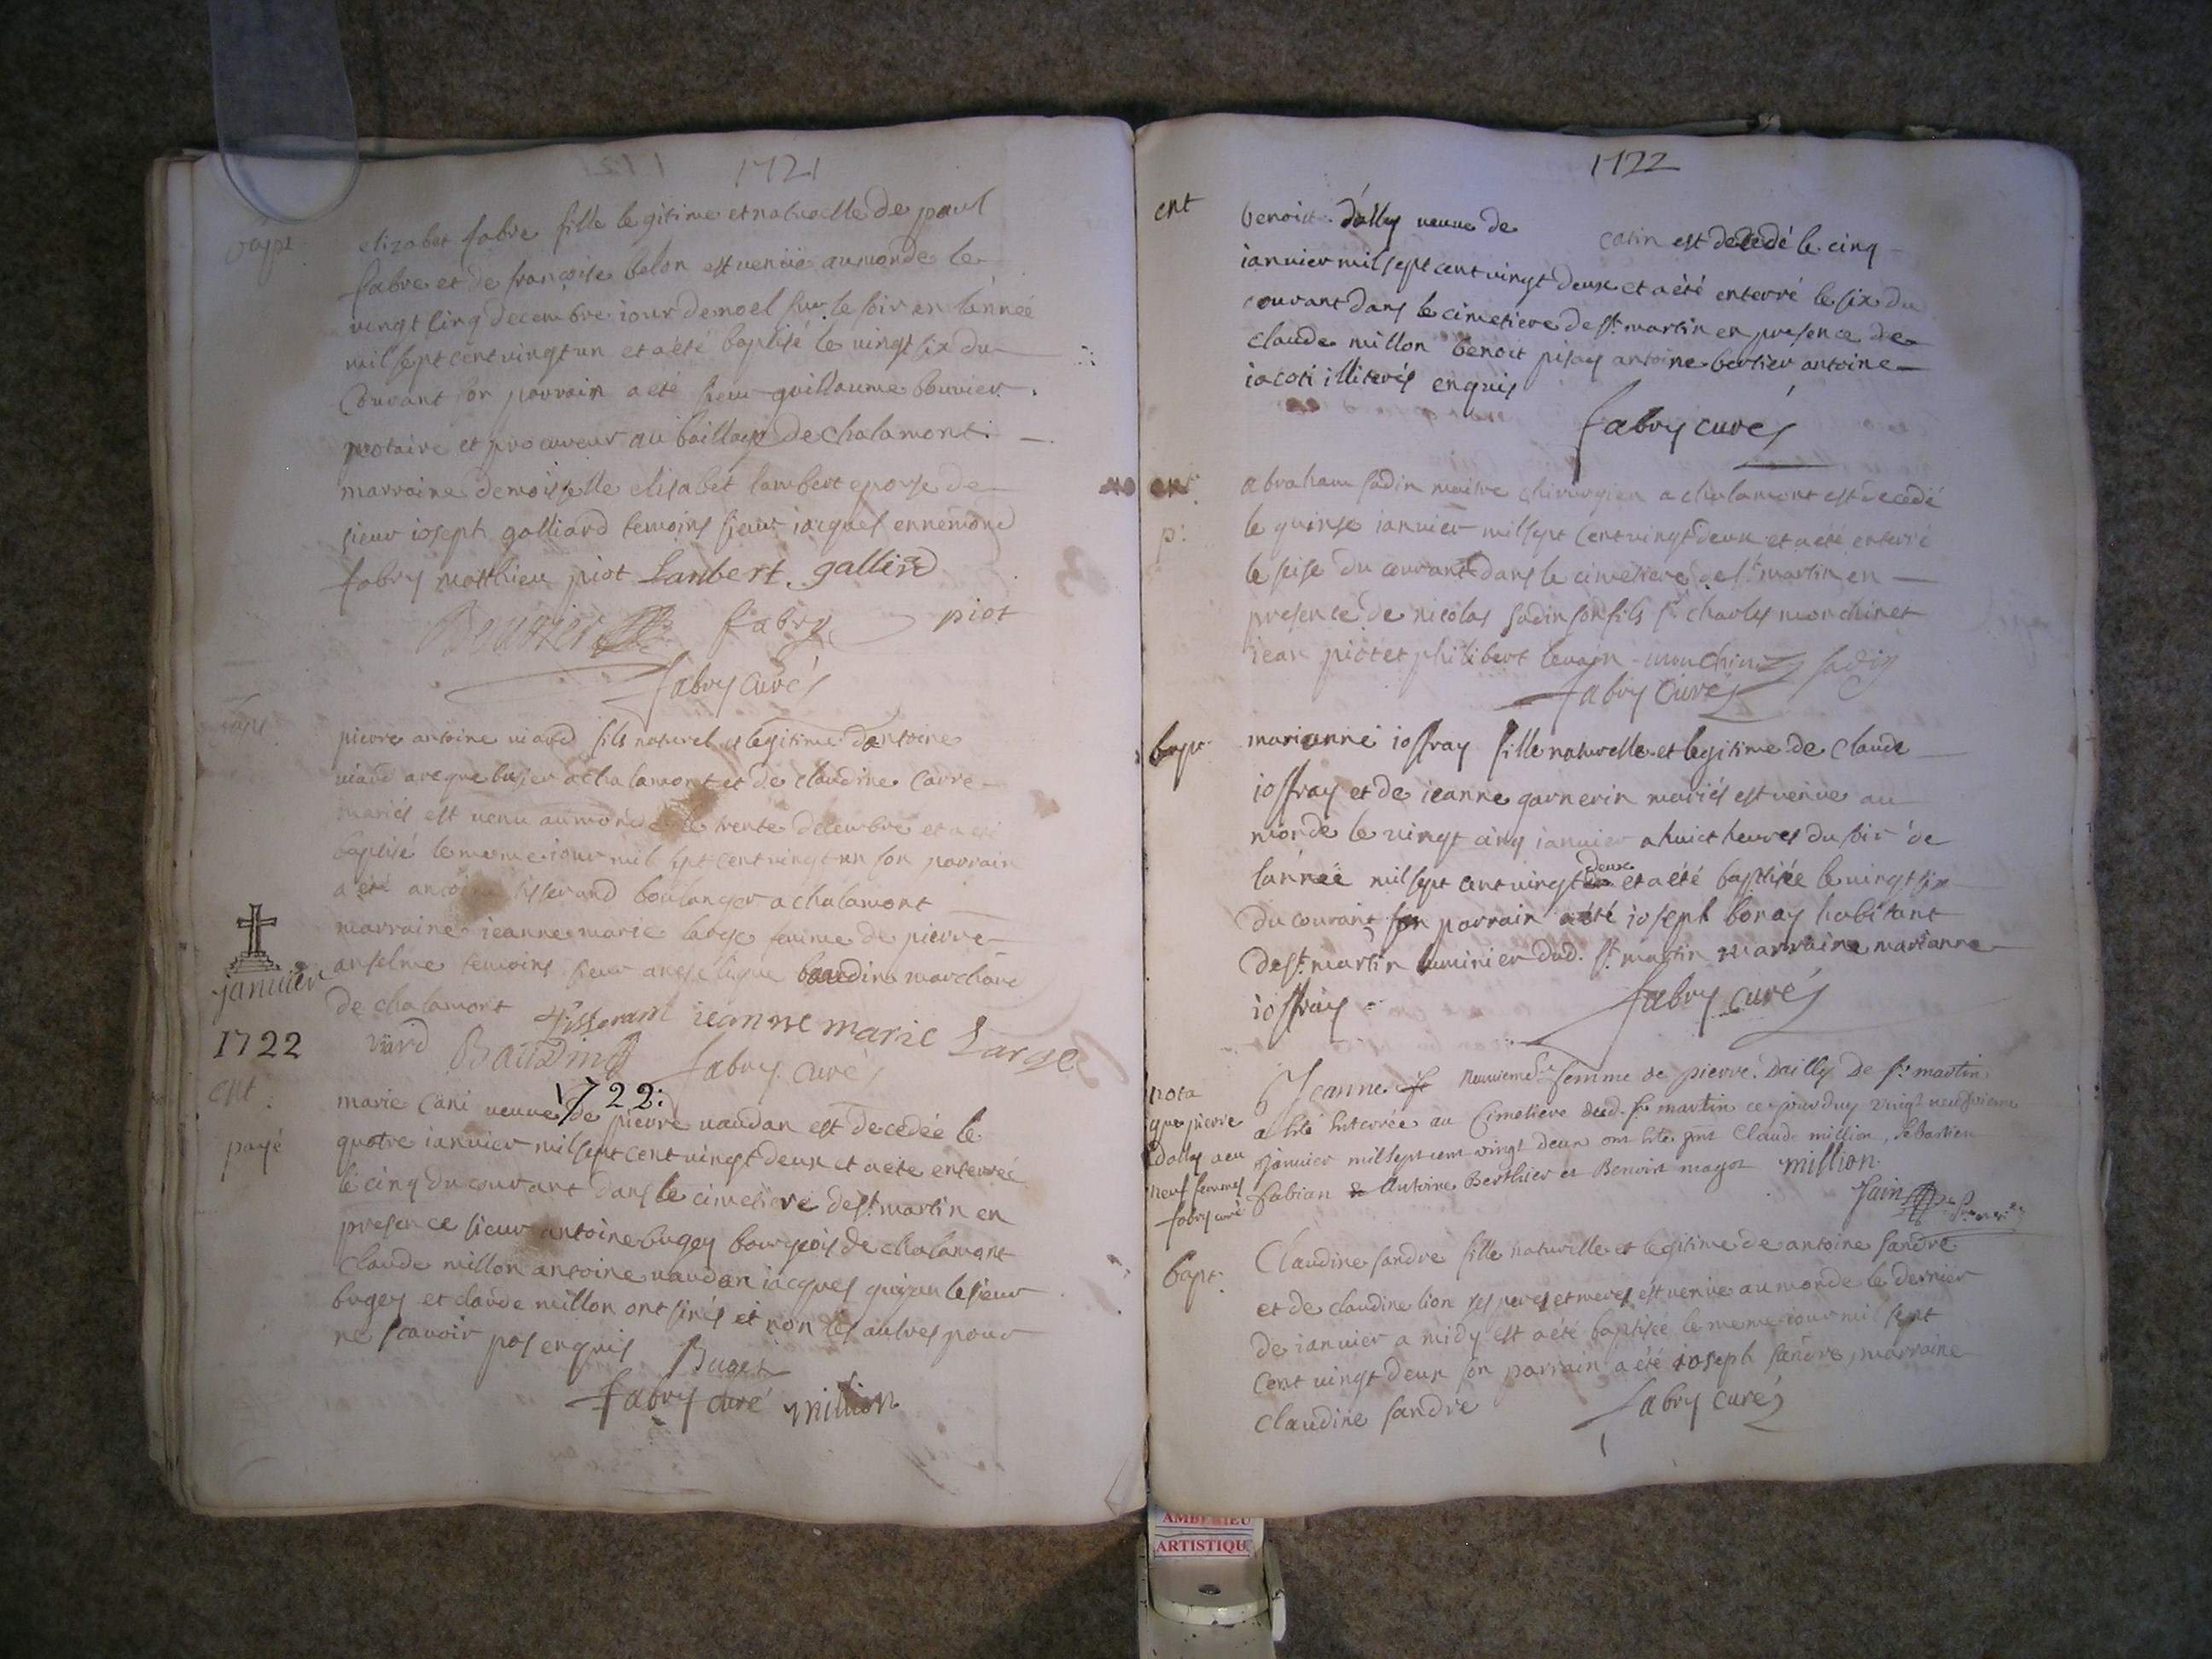 1721
bapt
elizabet fabre fille legitime et naturelle de paul
fabre et de françoise belon est venüe au monde le
vingt cinq decembre iour de noel sur le soir en lánneé
mil sept cent vingt un et a eté baptisé le vingt six du
Courant son parrain a eté sieur guillaume bouvier
notaire et procureur au baillage de chalamont
marraine demoiselle elisabet lambert epouse de
sieur ioseph galliard temoins sieur iacques ennemond
fabry matthieu piot Lanbert gallird
Bouvier fabry piot
fabry curé
bapt
pierre antoine viard fils naturel et legitime dántoine
viard arquebusier a chalamont et de claudine carre
mariés est venu au monde le trente decembre et a eté
baptisé le meme iour mil sept cent vingt un son parrain
a eté antoine tisserand boulanger a chalamont
marraine ieanne marie large femme de pierre
anselme temoins sieur angelique baudin marchand
de chalamont Tisserant ieanne marie Large
viard Baudin fabry curé
janvier
1722
1722:
ent
payé
marie cani veuve de pierre vaudan est decedeé le
quatre ianvier mil sept cent vingt deux et a eté enterreé
le cinq du courant dans le cimetiere de st. martin en
presence sieur antoine bugey bourgeois de chalamont
Claude millon antoine vaudan iacques guyau le sieur
bugey et claude millon ont sinés et non les autres pour
ne scavoir pas enquis Buget
fabry curé million
1722
ent
benoit dálly veuve de catin est decedé le cinq
ianvier mil sept cent vingt deux et a été enterré le six du
courant dans le cimetiere de st. martin en presence de
Claude millon benoit pisay antoine bertier antoine
iacoti illiterés enquis
fabry curé
ent
p:
abraham sadin maitre chirurgien a chalamont est decedé
le quinse ianvier mil sept cent vingt deux et a été enterré
le seise du courant dans le cimetiere de st. martin en
presence de nicolas sadin son fils sr. charles monchinet
iean piot et philibert levrain monchinet sadin
fabry curé
bapt
marianne ioffray fille naturelle et legitime de claude
ioffray et de ieanne garnerin mariés est venüe au
monde le vingt cinq ianvier a huict heures du soir de
lánneé mil sept cent vingt deux et a été baptiseé le vingt six
du courant son parrain a été ioseph bonay habitant
de st. martin luminier dud. st. martin marraine marianne
ioffray fabry curé
nota
que pierre
dally a eu
neuf femmes
fabry curé
Jeanne neuvieme femme de pierre Dailly De st. martin
a Eté Enterrée au Cimetiere dud. st. martin ce jourduy vingt neufvieme
Janvier mil sept cent vingt deux ont Eté pnt Claude million, sebastien
fabian Antoine Berthier et Benoist magot million
Jain
bapt:
Claudine sandre fille naturelle et legitime de antoine sandre
et de claudine lion ses peres et meres est venüe au monde le dernier
de ianvier a midy est a été baptiseé le meme iour mil sept
Cent vingt deux son parrain a été ioseph sandre, marraine
Claudine sandre fabry curé
AMBERIEU
ARTISTIQU